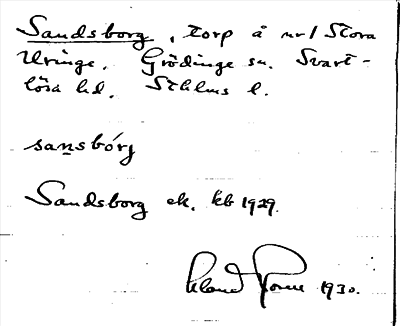 Sandsborg, torp å nr 1 Stora
Uringe. Grödinge sn. Svart-
lösa hd. Sthlms l.
sansbórg
Sandsborg ek. kb 1929.
1930.